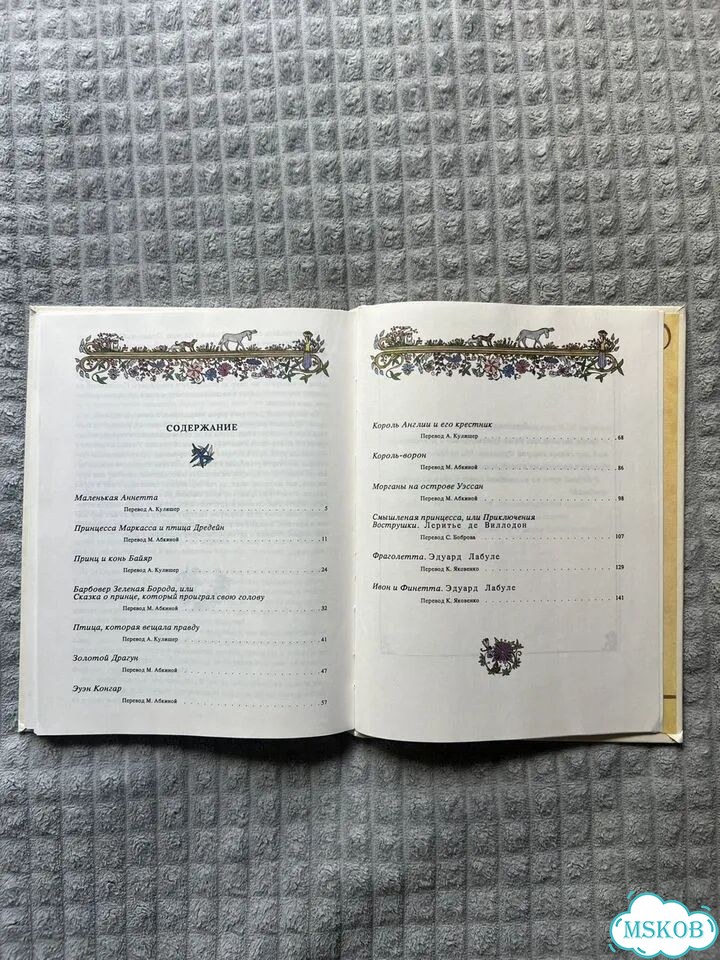 СОДЕРЖАНИЕ
Маленькая Аннетта
Перевод А. Кулишер . . . 5
Принцесса Маркасса и птица Дредейн
Перевод М. Абкиной . . . 11
Принц и конь Байяр
Перевод А. Кулишер . . . 24
Барбовер Зеленая Борода, или
Сказка о принце, который проиграл свою голову
Перевод М. Абкиной . . . 32
Птица, которая вещала правду
Перевод А. Кулишер . . . 41
Золотой Драгун
Перевод М. Абкиной . . . 47
Эуэн Конгар
Перевод М. Абкиной . . . 57
Король Англии и его крестник
Перевод А. Кулишер . . . 68
Король-ворон
Перевод М. Абкиной . . . 86
Морганы на острове Уэссан
Перевод М. Абкиной . . . 98
Смышленая принцесса, или Приключения
Вострушки. Леритье де Виллодон
Перевод С. Боброва . . . 107
Фраголетта. Эдуард Лабуле
Перевод К. Яковенко . . . 129
Ивон и Финетта. Эдуард Лабуле
Перевод К. Яковенко . . . 141
MSKOB